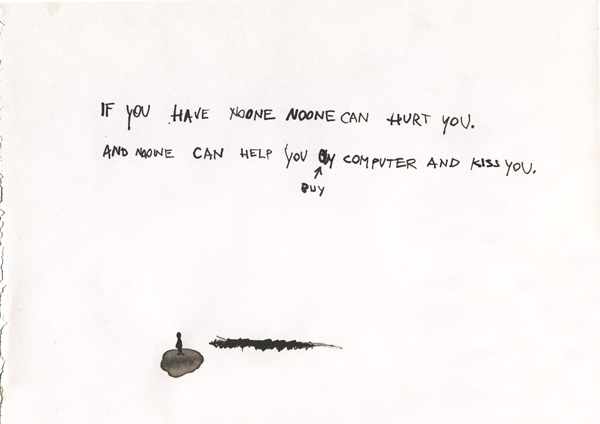 IF YOU HAVE NOONE NOONE CAN HURT YOU.
AND NOONE CAN HELP YOU BUY COMPUTER AND KISS YOU.
BUY